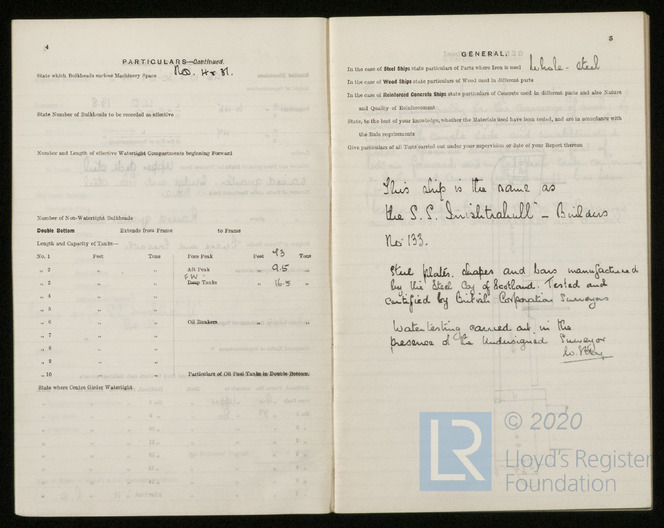 4
PARTICULARS—Continued.
State which Bulkheads enclose Machinery Space Nos. 4 & 31.
State Number of Bulkheads to be recorded as effective
Number and Length of effective Watertight Compartments beginning Forward
Number of Non-Watertight Bulkheads
Double Bottom Extends from Frame to Frame
Length and Capacity of Tanks—
No. 1 Feet Tons Fore Peak Feet 43 Tons
„ 2 „ „ Aft Peak „ 9.5 „
F.W.
„ 3 „ „ Deep Tanks „ 16.5 „
„ 4 „ „
„ 5 „ „
„ 6 „ „ Oil Bunkers „ „
„ 7 „ „
„ 8 „ „
„ 9 „ „
„ 10 „ „ Particulars of Oil Fuel Tanks in Double Bottom.
State where Centre Girder Watertight
5
GENERAL.
In the case of Steel Ships state particulars of Parts where Iron is used Whole - steel
In the case of Wood Ships state particulars of Wood used in different parts
In the case of Reinforced Concrete Ships state particulars of Concrete used in different parts and also Nature
and Quality of Reinforcement
State, to the best of your knowledge, whether the Materials used have been tested, and are in accordance with
the Rule requirements
Give particulars of all Tests carried out under your supervision or date of your Report thereon
This ship is the same as
the S.S. "Inishtrahull" - Builders
No 133.
Steel plates, shapes and bars manufactured
by the Steel Coy of Scotland. Tested and
certified by British Corporation Surveyors
Water testing carried out in the
presence of the Undersigned Surveyor
LR © 2020
Lloyd's Register
Foundation